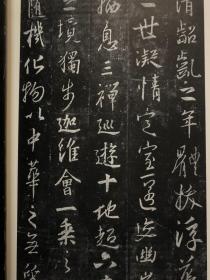 清齠齔之年體拔浮華
之世凝情定室匿迹幽巖
栖息三禪巡遊十地超六
之境獨步迦維會一乘之
隨機化物以中華之無質